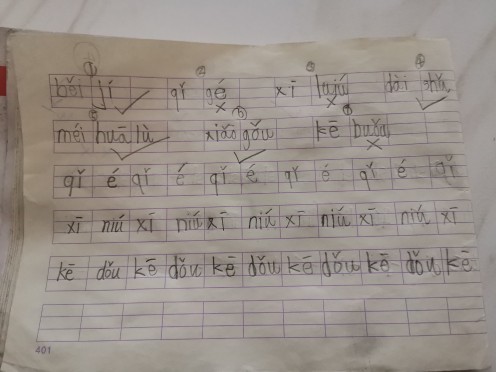 běi jí qǐ gé xī lujú dài shǔ
méi huā lù xiǎo gǒu kē buǒu
qǐ é qǐ é qǐ é qǐ é qǐ é qǐ
xī niú xī niú xī niú xī niú xī niú xī
kē dǒu kē dǒu kē dǒu kē dǒu kē dǒu kē
401